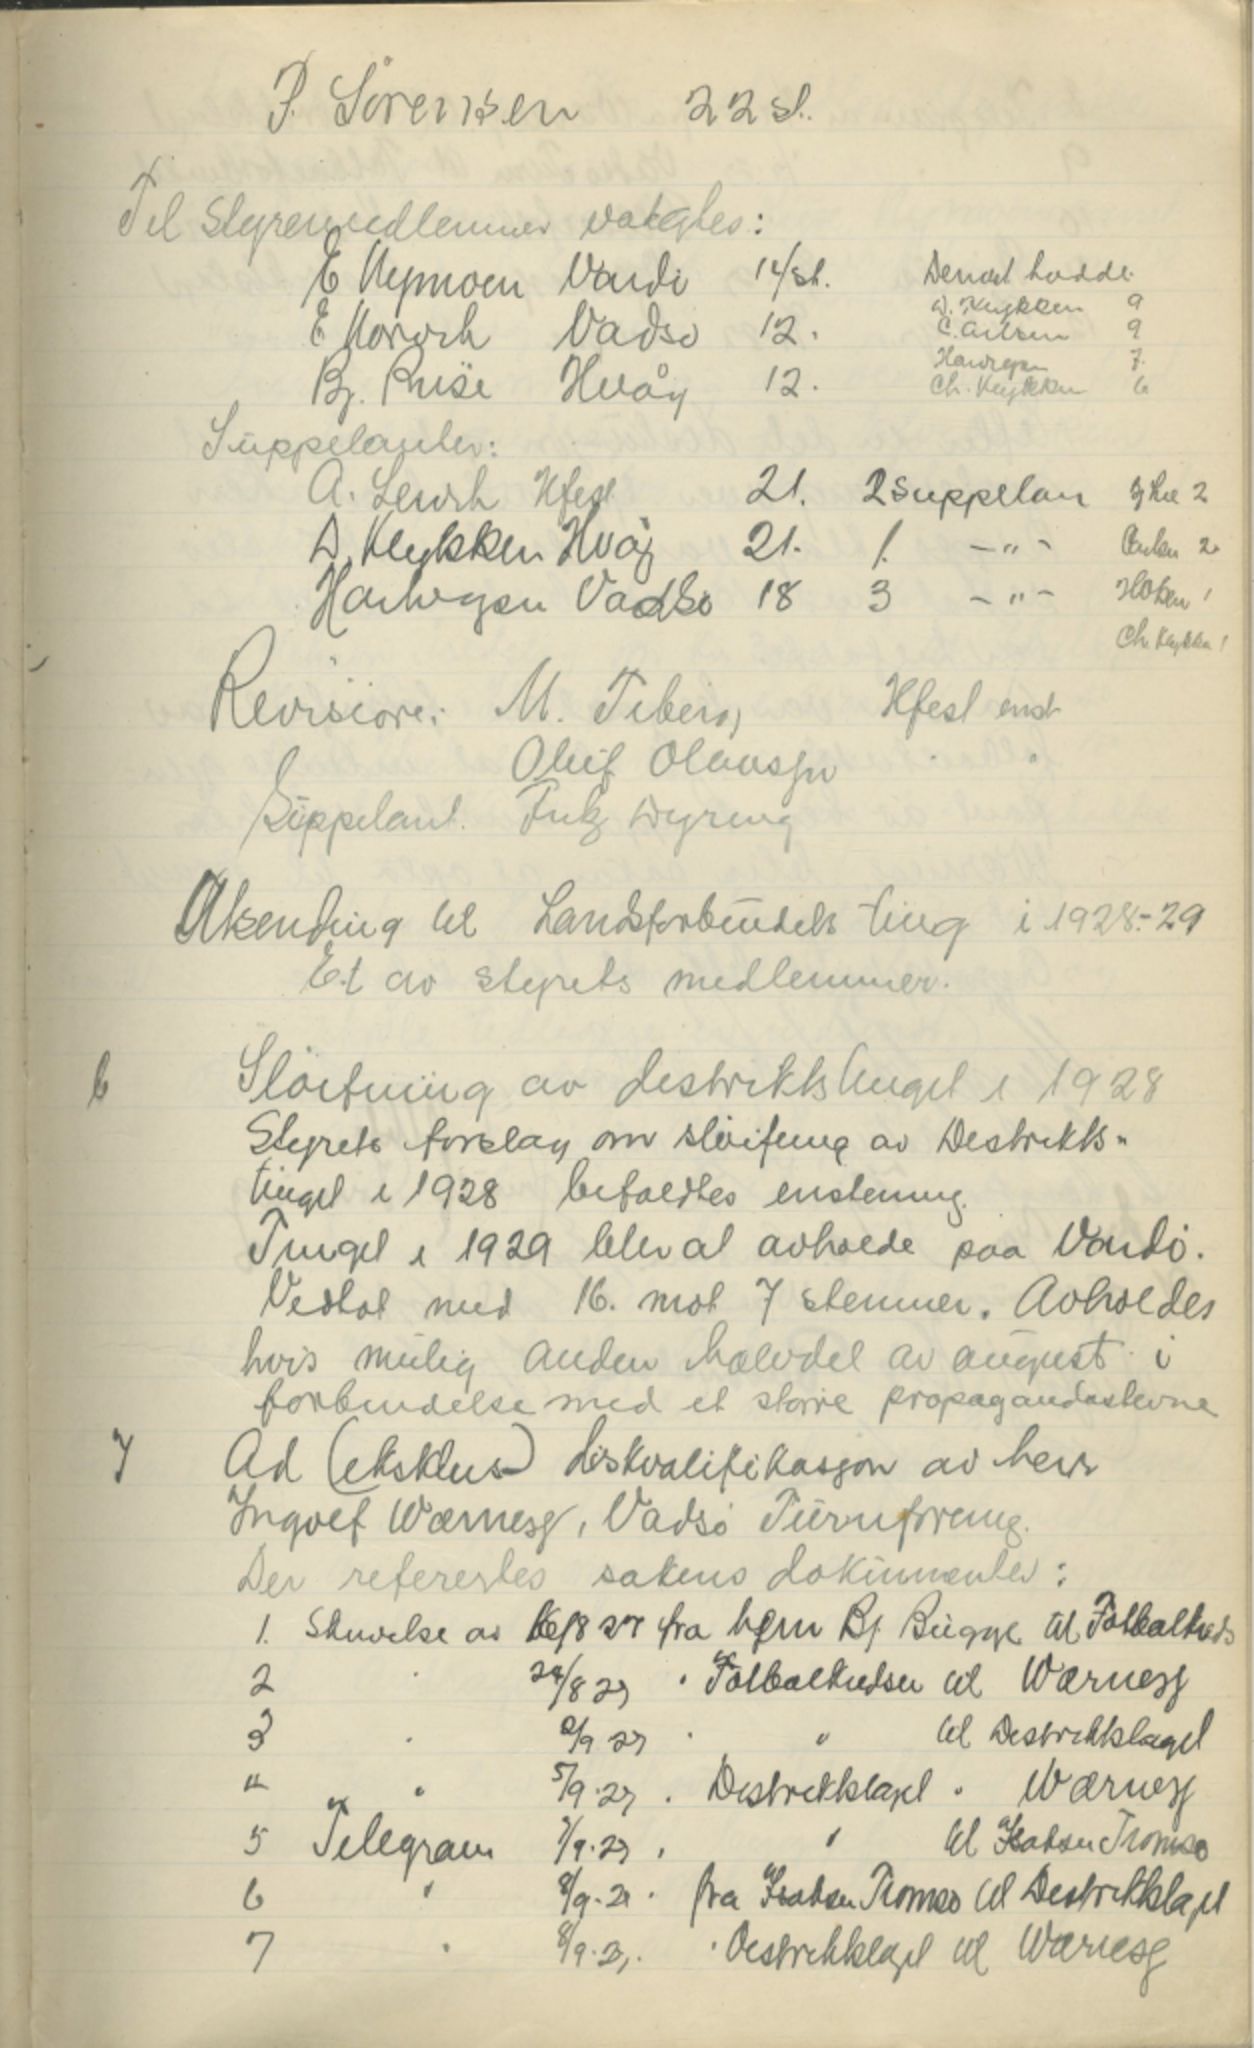 P. Sörensen 22 st.
Til styremedlemmer valgtes:
E Nymoen Vardö 14 st. Dernæst hadde
E Norvik Vadsö 12. D. Kløkken 9
C. Carlsen 9
Bj. Riise Hvåg 12. Harvegsen 7.
Ch. Kløkken 6
Suppelanter:
A. Lervik Hfest 21. 2 suppelan 2
D. Kløkken Hvåg 21. 1. -"- Carlsen 2
Harvegsen Vadsö 18 3 -"- 1
Ch. Kløkken 1
Revisiorer: M. Tiberg Hfest enst
Oluf Olaussen " "
Suppelant. Fritz Wyreng
Utsending til Landsforbundets ting i 1928-29
Et av styrets medlemmer.
6 Slöifning av distriktstinget i 1928
Styrets forslag om slöifning av Destrikts-
tinget i 1928 bifaldtes enstemig.
Tinget i 1929 blev at avholde paa Vardö.
Vedtat med 16. mot 7 stemmer. Avholdes
hvis mulig anden halvdel av august i
forbindelse med et större propagandastevne
7 Ad (eksklus-) diskvalifikasjon av herr
Ingolf Wærnesg, Vadsö Turnforening.
Der refereetes sakens dokumenter:
1. Skrivelse av 16/8 27 fra herr Bj. Bugge til Fotbalkreds
2 " 24/8 27 " Fotbalkredsen til Wærnesg
3 " 2/9 27 " " til Destriktslaget
4 " 5/9.27 . Destriktslaget " Wærnesg
5 Telegram 7/9.27 . " til Tromsö
6 " 8/9.27 . fra Tromsö til Destriktslaget
7 " 8/9.27. " Destriktslaget til Wærnesg